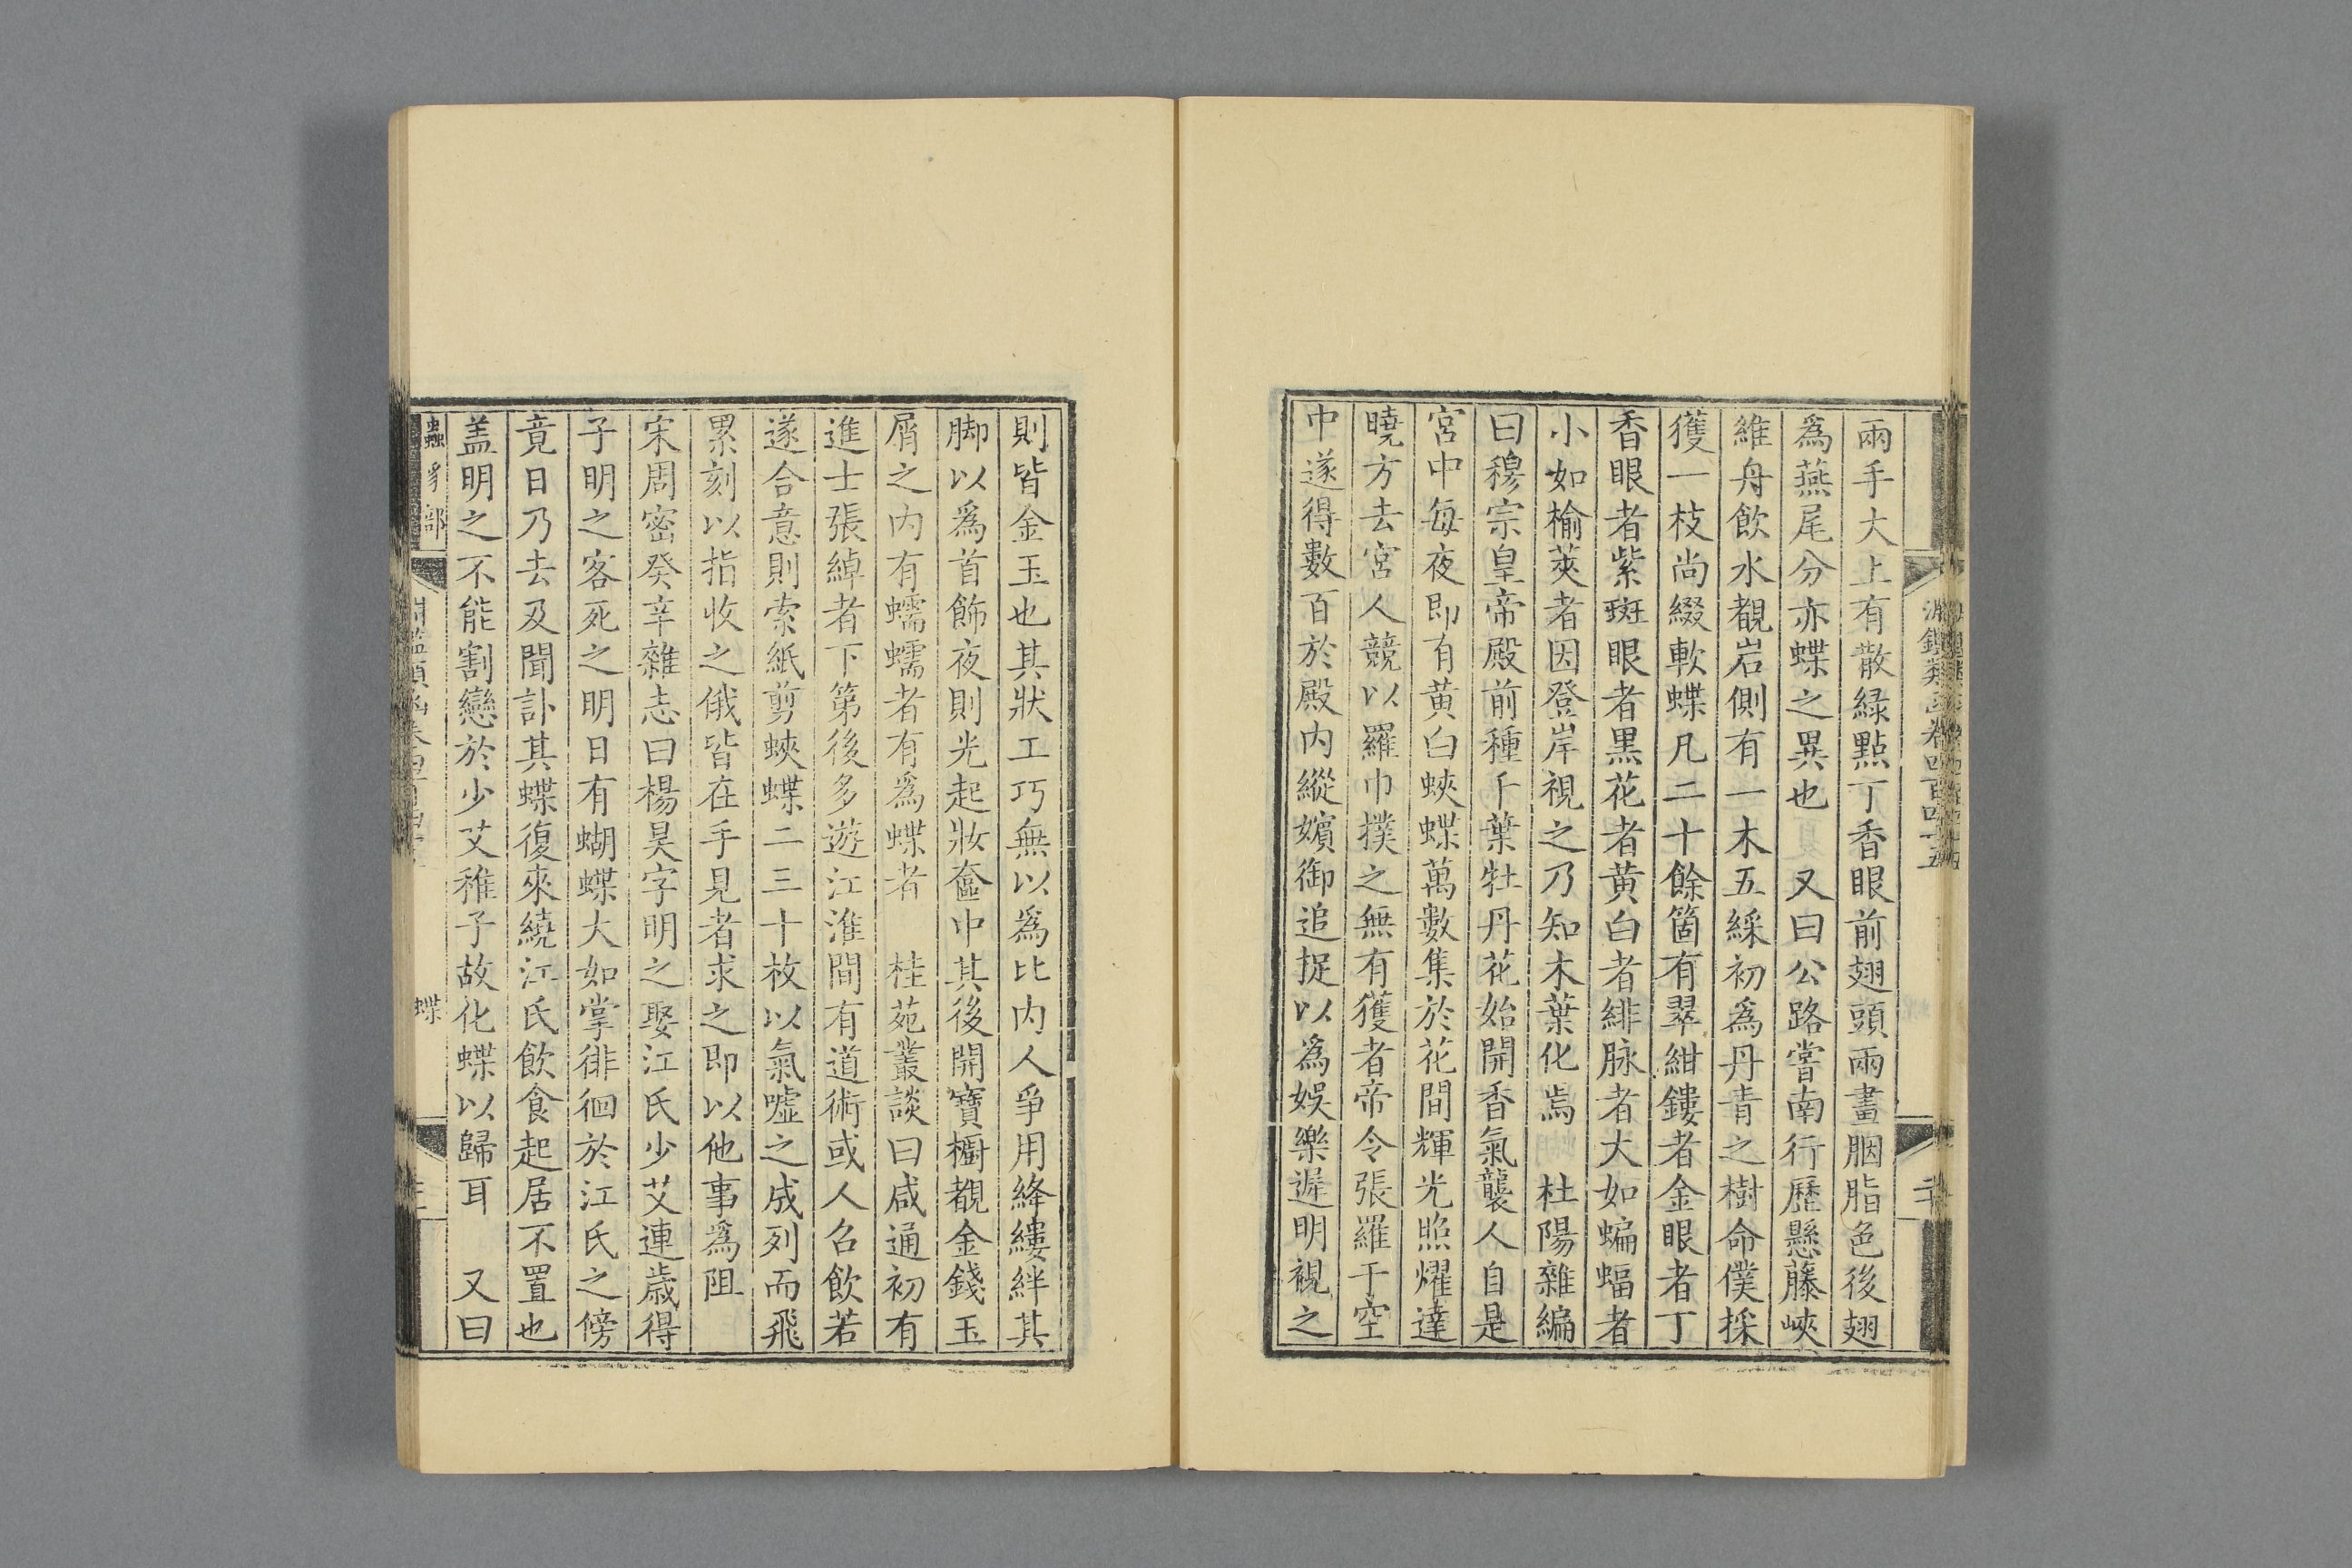 兩手大上有散緑點丁香眼前翅頭兩畫胭脂色後翅
爲燕尾分亦蝶之異也 又曰公路嘗南行歷懸藤峽
維舟飲水覩岩側有一木五綵初爲丹青之樹命僕採
獲一枝尚綴軟蝶凡二十餘箇有翠紺鏤者金眼者丁
香眼者紫斑眼者黒花者黄白者緋脉者大如蝙蝠者
小如榆莢者因登岸視之乃知木葉化焉 杜陽雜編
曰穆宗皇帝殿前種千葉牡丹花始開香氣襲人自是
宮中每夜即有黄白蛺蝶萬數集於花間輝光照燿達
曉方去宮人競以羅巾撲之無有獲者帝令張羅于空
中遂得數百於殿内縱嬪御追捉以爲娛樂遲明視之
則皆金玉也其狀工巧無以爲比内人爭用絳縷絆其
脚以爲首飾夜則光起妝奩中其後開寶櫥覩金錢玉
屑之内有蠕蠕者有爲蝶者 桂苑叢談曰咸通初有
進士張綽者下第後多遊江淮間有道術或人召飲若
遂合意則索紙剪蛺蝶二三十枚以氣嘘之成列而飛
累刻以指收之俄皆在手見者求之即以他事爲阻
宋周密癸辛雜志曰楊昊字明之娶江氏少艾連歳得
子明之客死之明日有蝴蝶大如掌徘徊於江氏之傍
竟日乃去及聞訃其蝶復來繞江氏飲食起居不置也
盖明之不能割戀於少艾稚子故化蝶以歸耳 又曰
蟲豸部
蝶